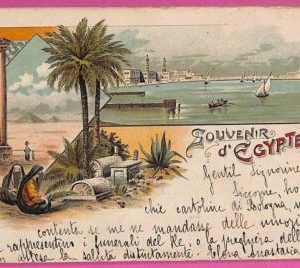 SOUVENIR
d'EGYPTE
Gentil Signorine
Siccome ho
chie cartoline di Bologna, s
contenta se me ne mandane delle
rappresentino i funerali del Re, o la preghiera delle
attesa la saluto distintamente.